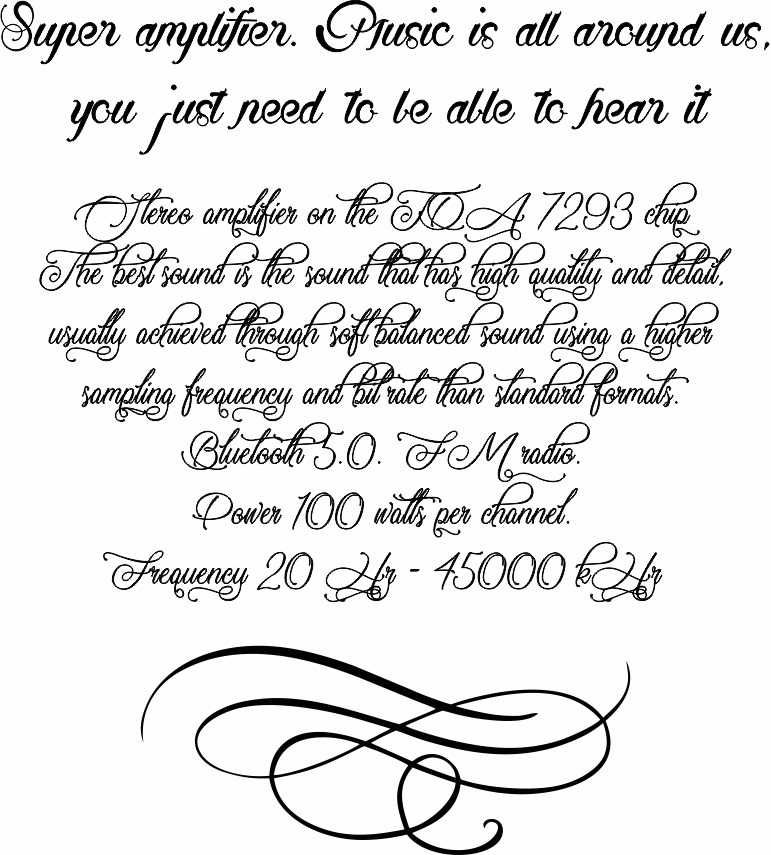 Super amplifier. Music is all around us,
you just need to be able to hear it
Stereo amplifier on the TDA 7293 chip
The best sound is the sound that has high quality and detail,
usually achieved through soft balanced sound using a higher
sampling frequency and bit rate than standard formats.
Bluetooth 5.0. FM radio.
Power 100 watts per channel.
Frequency 20 Hz - 45000 kHz